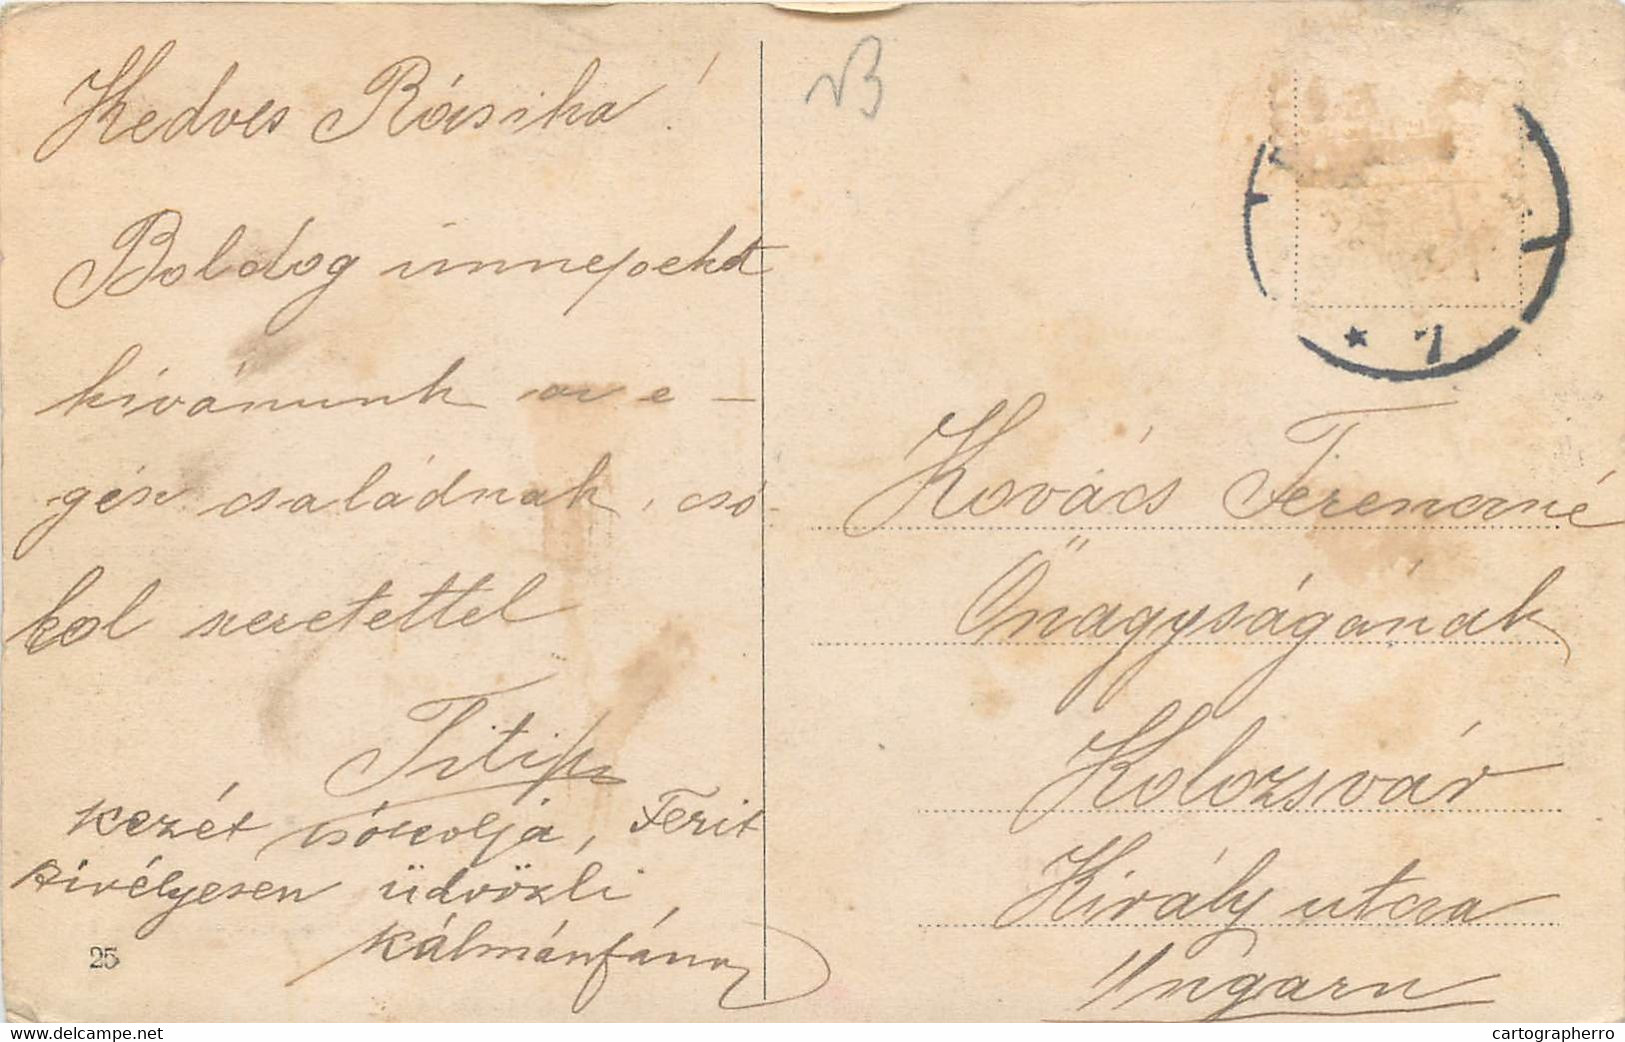 Kedves Rózsika!
Boldog ünnepeket
kívánunk az e-
gész családnak, csó-
kol szeretettel
Titi
kezét csókolja, Ferit
szívélyesen üdvözli
Kálmán
25
Kovács Ferenczné
Őnagyságának
Kolozsvár
Király utcza
Ungarn
www.delcampe.net
cartographerro